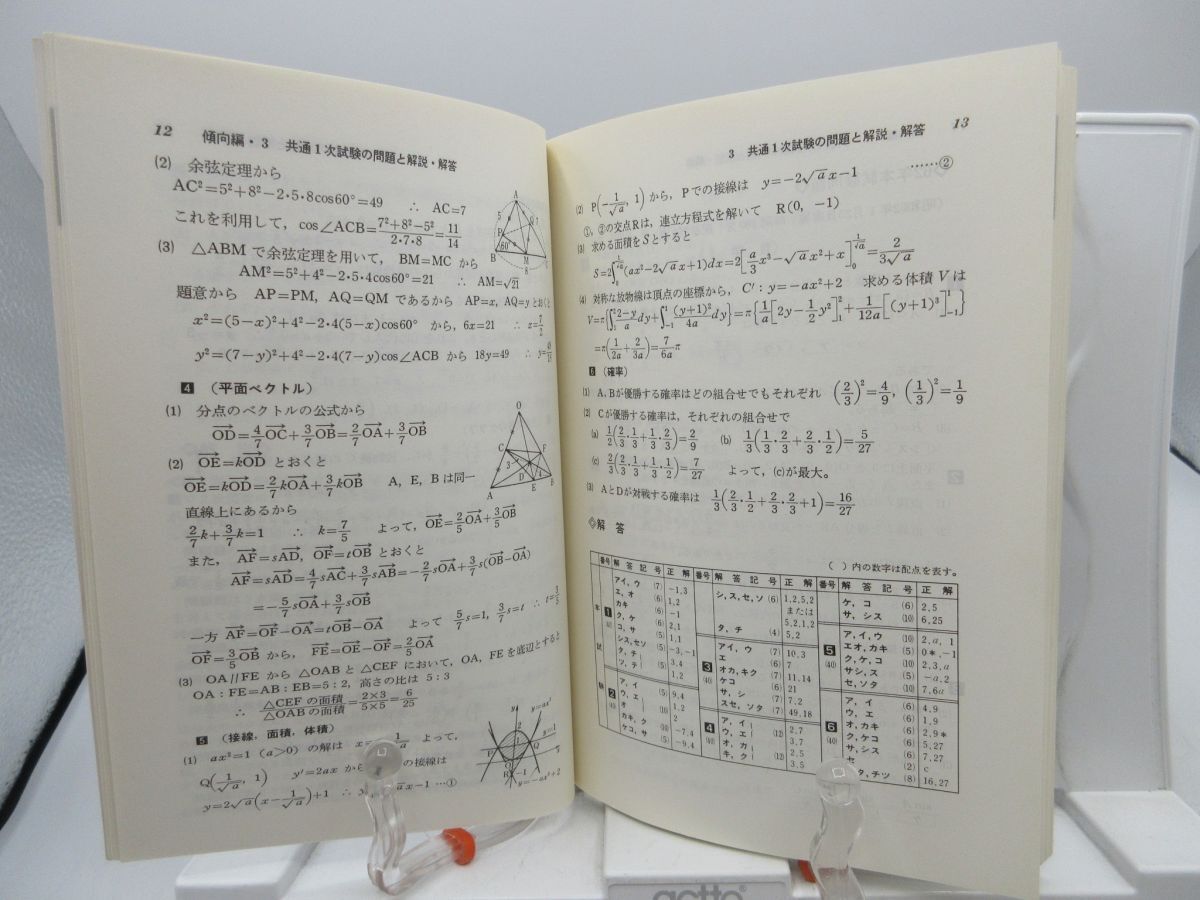 12 傾向編・3 共通1次試験の問題と解説・解答
(2) 余弦定理から
AC²=5²+8²−2・5・8cos60°=49 ∴ AC=7
これを利用して, cos∠ACB=(7²+8²−5²)/(2・7・8)=11/14
(3) △ABMで余弦定理を用いて, BM=MCから
AM²=5²+4²−2・5・4cos60°=21 ∴ AM=√21
題意から AP=PM, AQ=QMであるから AP=x, AQ=yとおくと
x²=(5−x)²+4²−2・4(5−x)cos60° から, 6x=21 ∴ x=7/2
y²=(7−y)²+4²−2・4(7−y)cos∠ACB から 18y=49 ∴ y=49/18
4 (平面ベクトル)
(1) 分点のベクトルの公式から
OD→=4/7 OC→+3/7 OB→=2/7 OA→+3/7 OB→
(2) OE→=kOD→ とおくと
OE→=kOD→=2/7 kOA→+3/7 kOB→ A, E, Bは同一
直線上にあるから
2/7 k+3/7 k=1 ∴ k=7/5 よって, OE→=2/5 OA→+3/5 OB→
また, AF→=sAD→, OF→=tOB→ とおくと
AF→=sAD→=4/7 sAC→+3/7 sAB→=−2/7 sOA→+3/7 s(OB→−OA→)
=−5/7 sOA→+3/7 sOB→
一方 AF→=OF→−OA→=tOB→−OA→ よって 5/7 s=1, 3/7 s=t ∴ t=3/5
OF→=3/5 OB→ から, FE→=OE→−OF→=2/5 OA→
(3) OA//FEから △OABと△CEFにおいて, OA, FEを底辺とすると
OA:FE=AB:EB=5:2, 高さの比は 5:3
∴ △CEFの面積/△OABの面積=(2×3)/(5×5)=6/25
5 (接線, 面積, 体積)
(1) ax²=1 (a>0) の解は x= 1/√a よって,
Q(1/√a, 1) y′=2ax から の接線は
y=2√a(x−1/√a)+1 ∴ ax−1 …①
3 共通1次試験の問題と解説・解答 13
(2) P(−1/√a, 1)から, Pでの接線は y=−2√a x−1 ……②
①, ②の交点Rは, 連立方程式を解いて R(0, −1)
(3) 求める面積をSとすると
S=2∫₀^(1/√a)(ax²−2√a x+1)dx=2[a/3 x³−√a x²+x]₀^(1/√a)=2/(3√a)
(4) 対称な放物線は頂点の座標から, C′: y=−ax²+2 求める体積Vは
V=π{∫₁²(2−y)/a dy+∫₋₁¹(y+1)²/4a dy}=π{1/a[2y−1/2 y²]₁²+1/12a[(y+1)³]₋₁¹}
=π(1/2a+2/3a)=7/6a π
6 (確率)
(1) A, Bが優勝する確率はどの組合せでもそれぞれ (2/3)²=4/9, (1/3)²=1/9
(2) Cが優勝する確率は, それぞれの組合せで
(a) 1/2(2/3・1/3+1/3・2/3)=2/9 (b) 1/3(1/3・2/3+2/3・1/2)=5/27
(c) 2/3(2/3・1/3+1/3・1/2)=7/27 よって, (c)が最大。
(3) AとDが対戦する確率は 1/3(2/3・1/2+2/3・2/3+1)=16/27
◇解 答
( )内の数字は配点を表す。
番号 解答記号 正解 番号 解答記号 正解 番号 解答記号 正解
本 試 験
1 (40)
アイ, ウ (7) −1,3
エ, オ (6) 1,2
カキ (6) −1
ク, ケ (6) 2,1
コ, サ (5) 1,1
シス, セソ (5) −3,−1
タ, チ (5) 3,4
ツ, テ 1,2
2 (40)
ア, イ (5) 9,4
ウ, エ 1,2
オ 2
カキ, ク (10) −7,4
ケコ, サ (5) −9,4
シ, ス, セ, ソ (6) 1,2,5,2
または
5,2,1,2
タ, チ (4) 5,2
3 (40)
アイ, ウ (7) 10,3
エ (6) 7
オカ, キク (7) 11,14
ケコ (6) 21
サ, シ (7) 7,2
スセ, ソタ (7) 49,18
4 (40)
ア, イ 2,7
ウ, エ (12) 3,7
オ, カ 2,5
キ, ク (12) 3,5
ケ, コ (6) 2,5
サ, シス (10) 6,25
5 (40)
ア, イ, ウ (10) 2,a,1
エオ, カキ (5) 0*,−1
ク, ケ, コ (10) 2,3,a
サシ, ス (5) −a,2
セ, ソタ (10) 7,6a
6 (40)
ア, イ (6) 4,9
ウ, エ (6) 1,9
オ, カキ (6) 2,9*
ク, ケコ (6) 5,27
サ, シス (6) 7,27
セ (2) c
タ, チツ (8) 16,27
actto